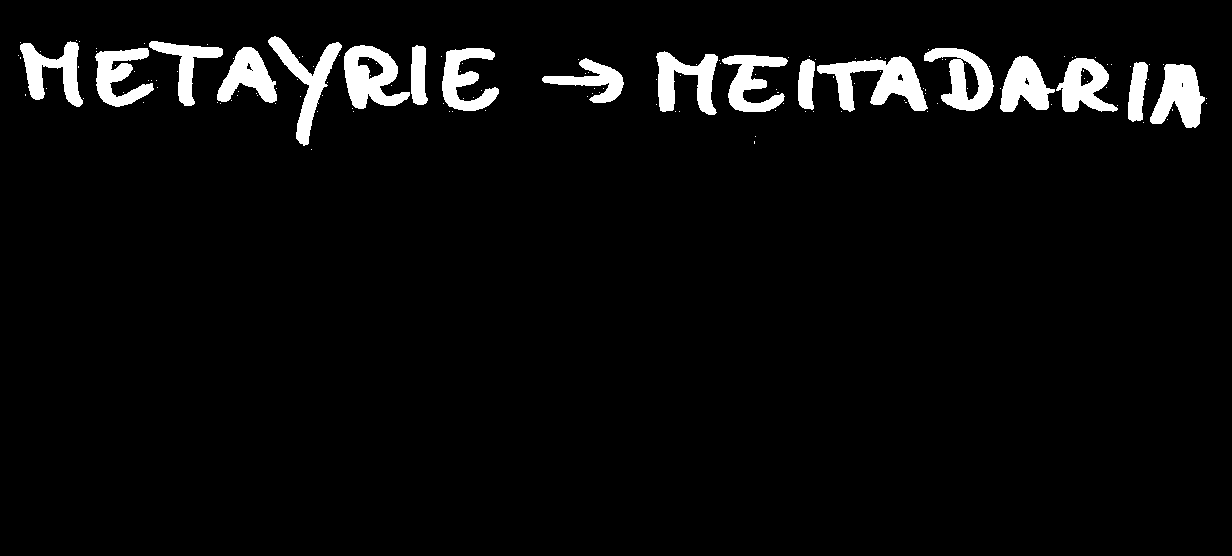 METAYRIE → MEITADARIA